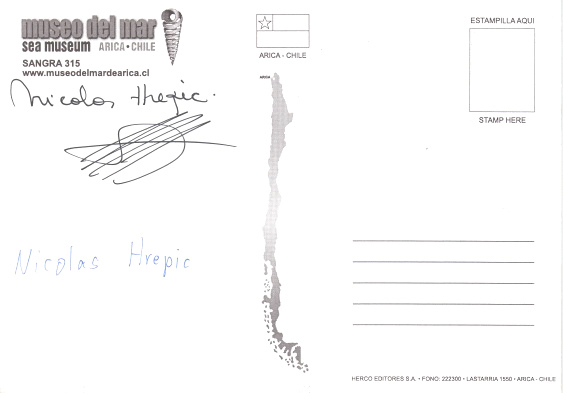 museo del mar
sea museum ARICA • CHILE
SANGRA 315
www.museodelmardearica.cl
Nicolas Hrepic.
Nicolas Hrepic
ARICA - CHILE
ARICA
ESTAMPILLA AQUI
STAMP HERE
HERCO EDITORES S.A. • FONO: 222300 • LASTARRIA 1550 • ARICA - CHILE